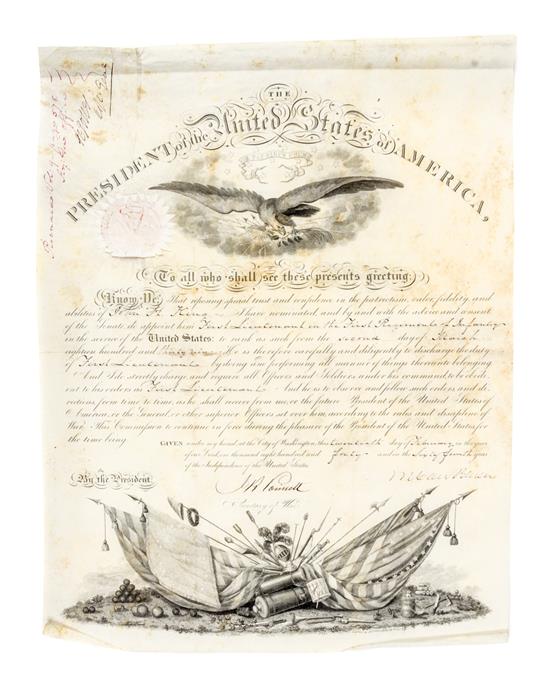 THE
PRESIDENT of the United States of AMERICA,
To all who shall see these presents greeting:
Know Ye, That reposing special trust and confidence in the patriotism, valor, fidelity, and
abilities of John H. King I have nominated, and by and with the advice and consent
of the Senate do appoint him First Lieutenant in the First Regiment of Infantry
in the service of the United States: to rank as such from the second day of March
eighteen hundred and thirty nine. He is therefore carefully and diligently to discharge the duty
of First Lieutenant by doing and performing all manner of things thereunto belonging.
And I do strictly charge and require all Officers and Soldiers under his command to be obedi-
ent to his orders as First Lieutenant. And he is to observe and follow such orders and di-
rections, from time to time, as he shall receive from me, or the future President of the United States of
America, or the General or other superior Officers set over him, according to the rules and discipline of
War. This Commission to continue in force during the pleasure of the President of the United States for
the time being.
GIVEN under my hand at the City of Washington, this twentieth day of February in the year
of our Lord one thousand eight hundred and forty and in the Sixty fourth year
of the Independence of the United States.
By the President
M Van Buren
J R Poinsett
Secretary of War.